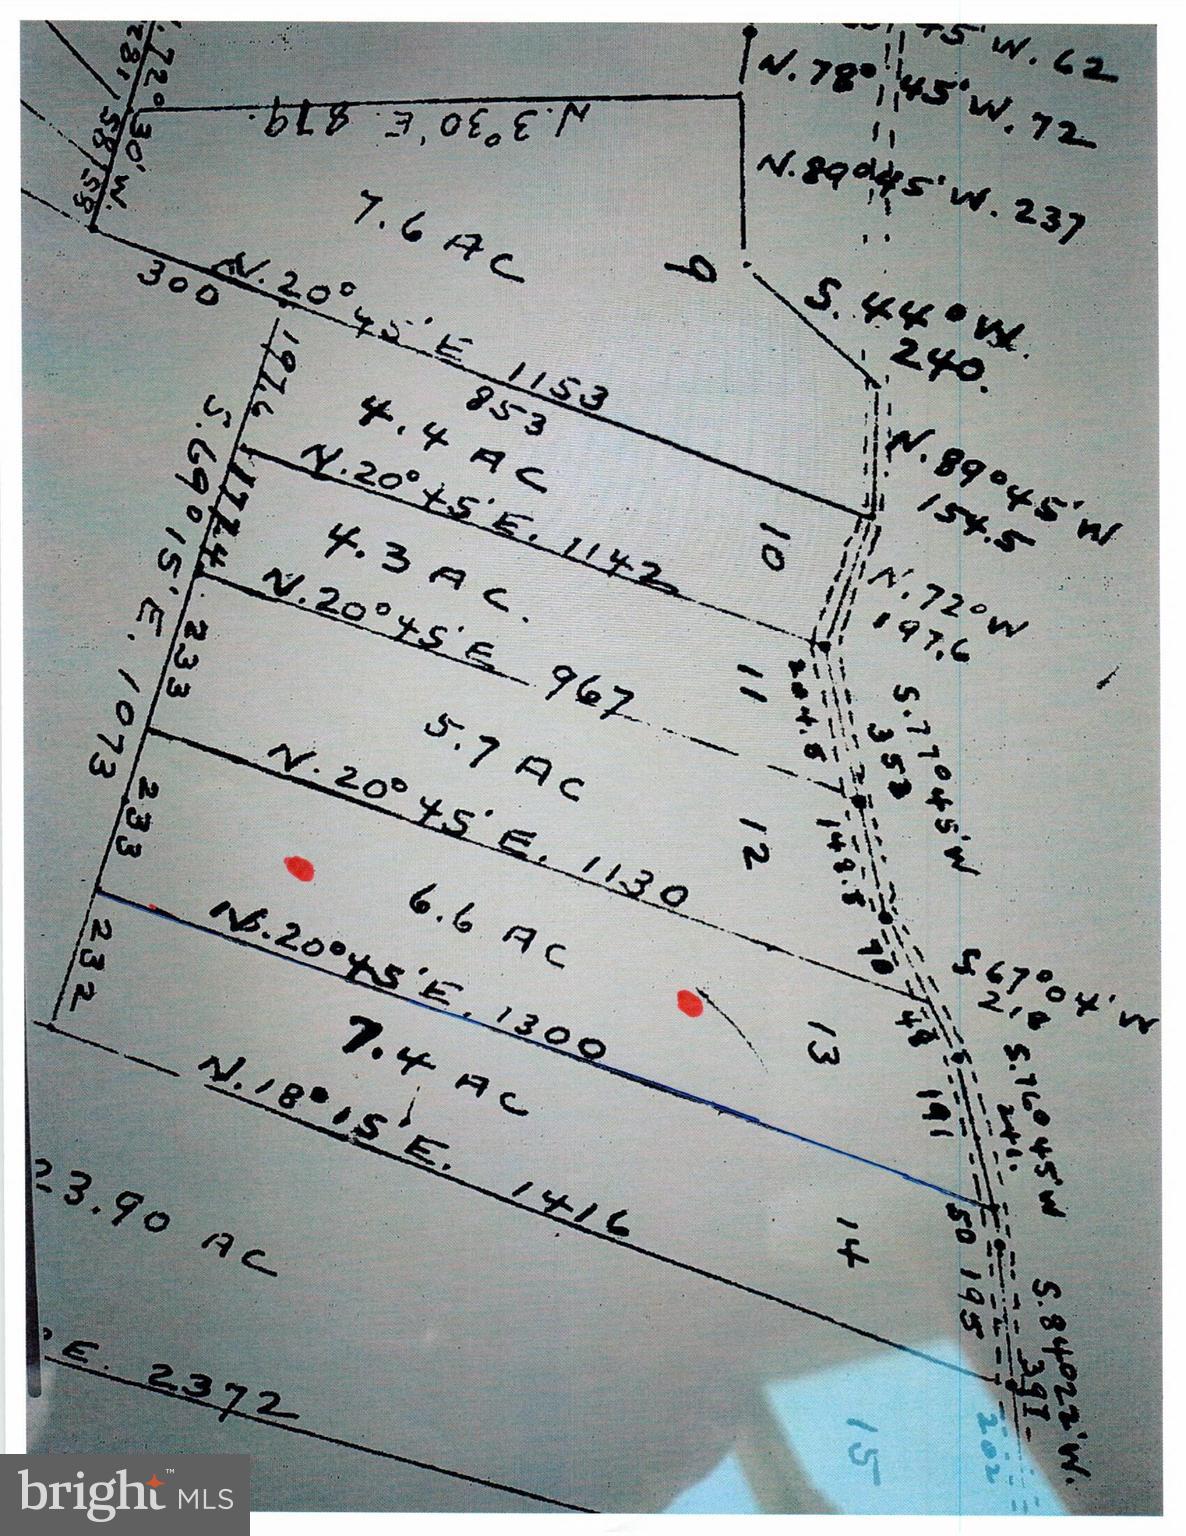 45' W. 62
N. 78° 45' W. 72
72° 30' W.
N. 3° 30' E. 879.
N. 89° 45' W. 237
7.6 AC
9
300
N. 20° 45' E 1153
S. 44° W.
240.
197.6
853
4.4 AC
N. 89° 45' W
154.5
S. 69° 15' E. 1073
177.4
N. 20° 45' E. 1142
10
4.3 AC.
N. 72° W
197.6
N. 20° 45' E 967
11
204.5
S. 77° 45' W
353
233
5.7 AC
12
148.5
N. 20° 45' E. 1130
233
6.6 AC
70
S. 67° 04' W
13
48
N. 20° 45' E. 1300
232
7.4 AC
191
S. 76° 45' W
241.
N. 18° 15' E. 1416
14
50
195
S. 84° 022' W.
391
23.90 AC
' E. 2372
15
202
bright™ MLS